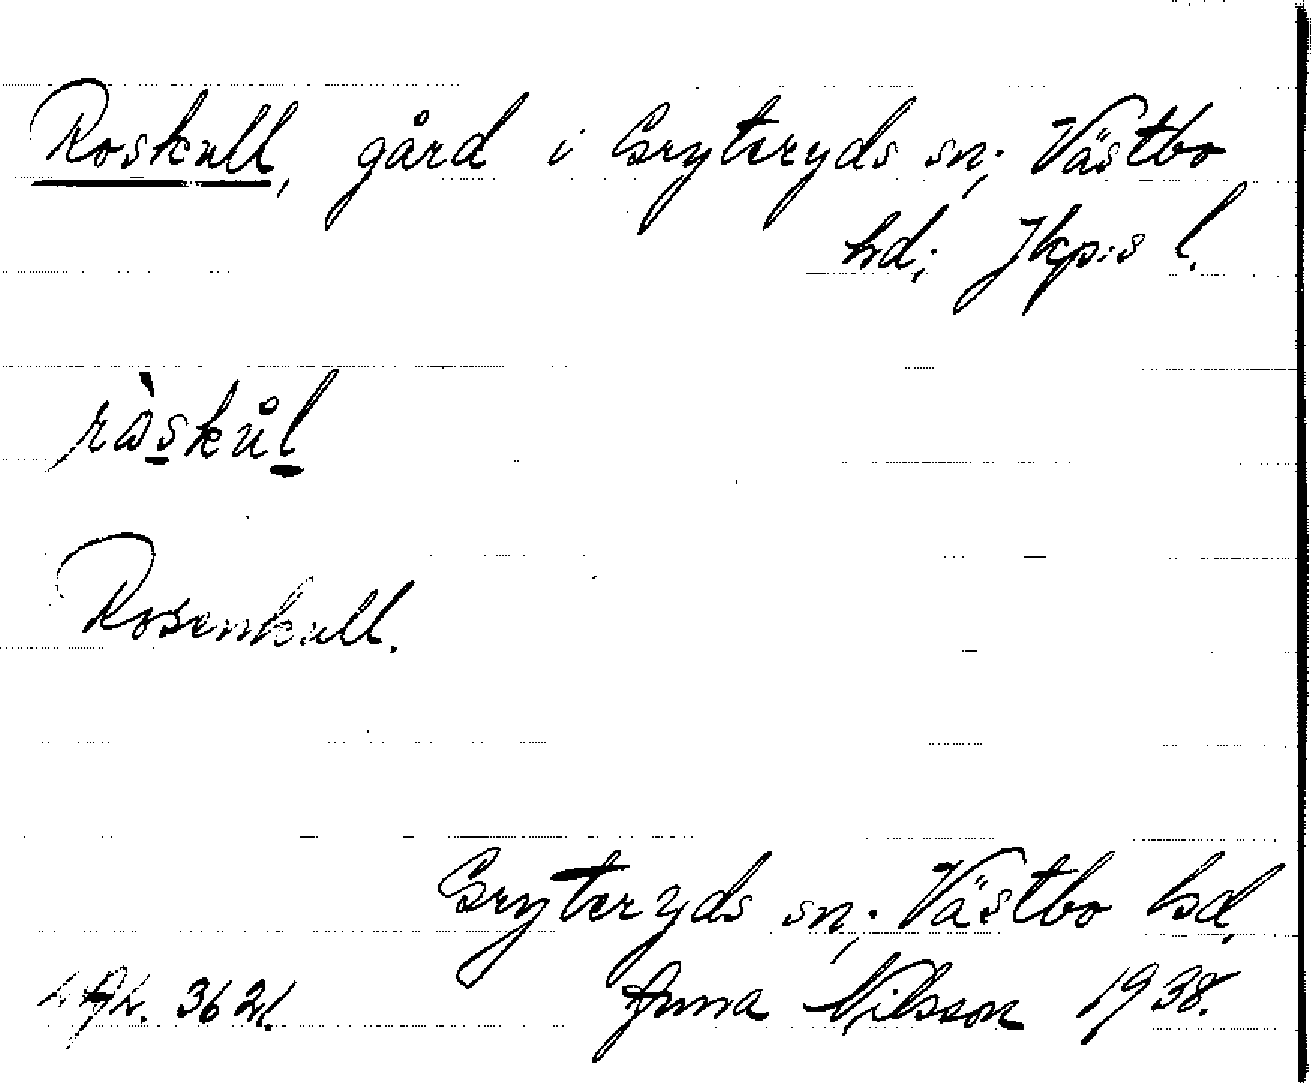 Roskull, gård i Gryteryds sn; Västbo
hd; Jkp:s l.
ràskůl
Rosenkull.
Gryteryds sn; Västbo hd,
Anna Nilsson 1938.